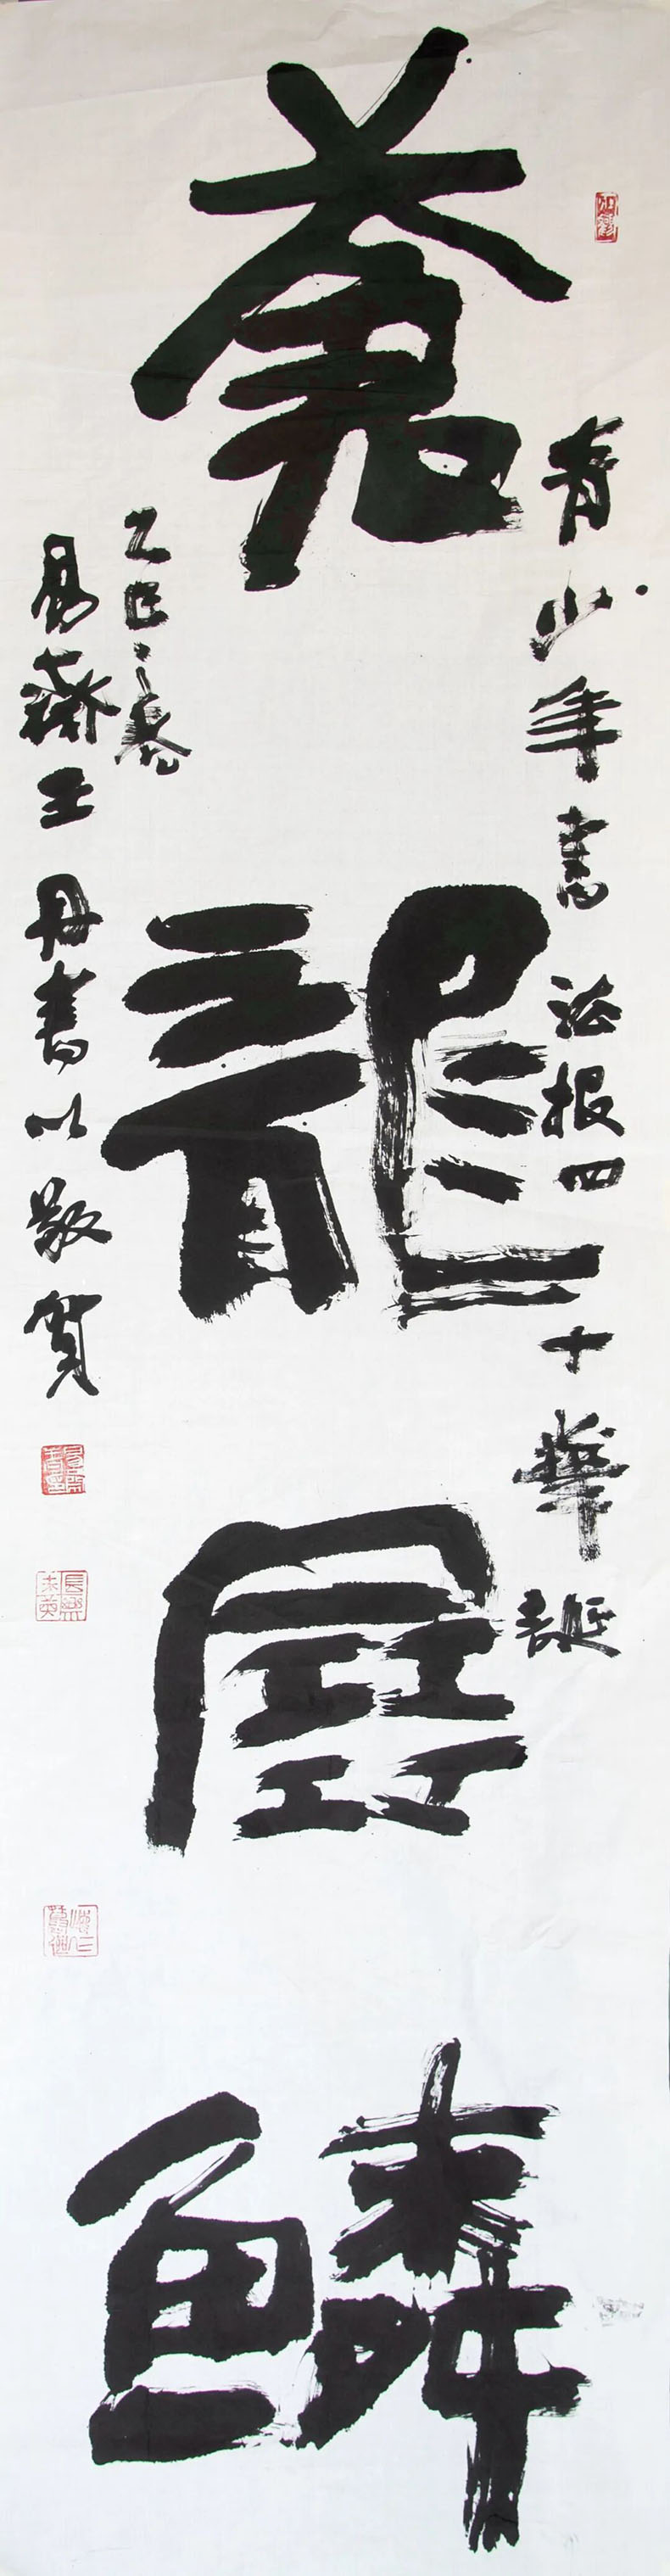 蒼龍展鱗
青少年書法報四十華誕
乙巳之春
易齋王丹書以敬賀